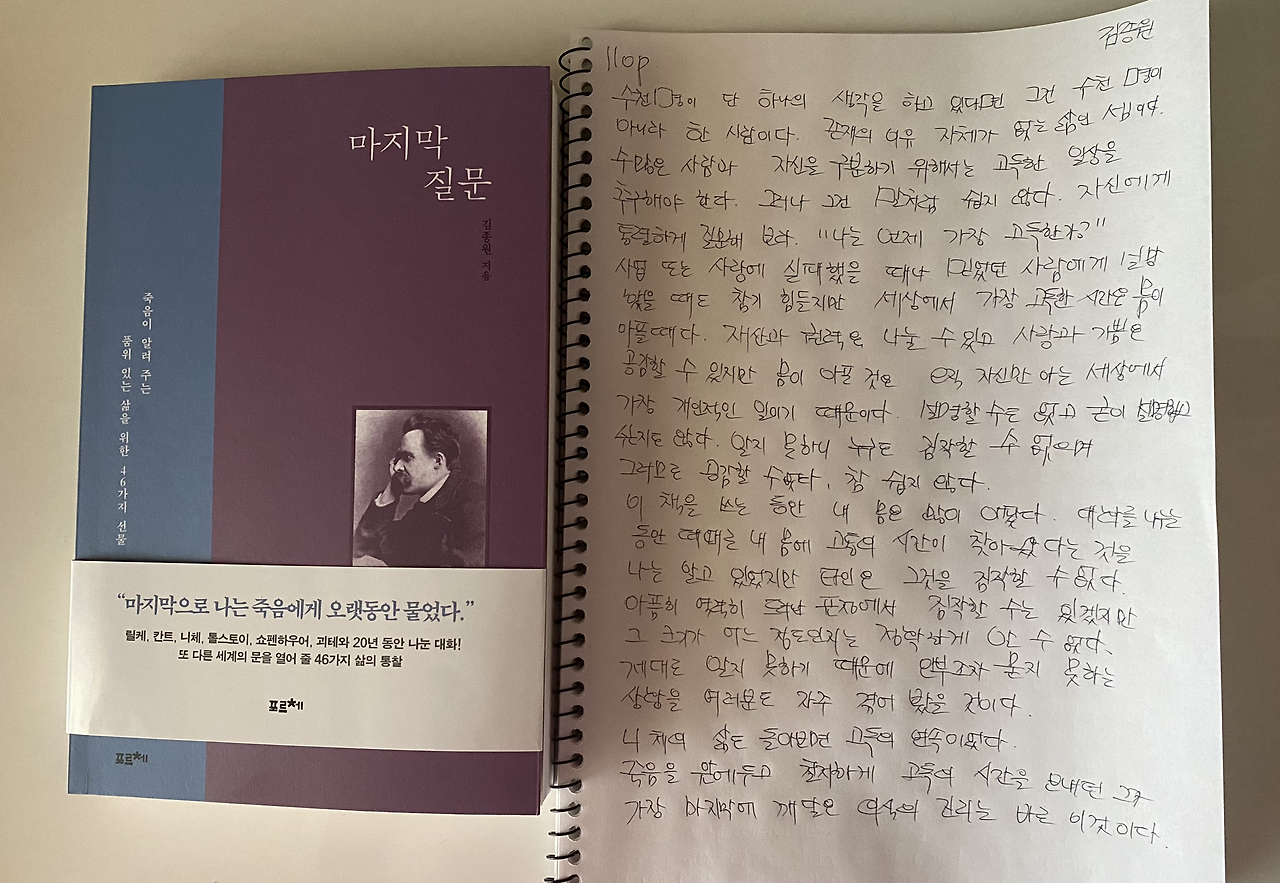 마지막
질문
김종원 지음
죽음이 알려 주는
품위 있는 삶을 위한 46가지 선물
“마지막으로 나는 죽음에게 오랫동안 물었다.”
릴케, 칸트, 니체, 톨스토이, 쇼펜하우어, 괴테와 20년 동안 나눈 대화!
또 다른 세계의 문을 열어 줄 46가지 삶의 통찰
포르체
포르체
김종원
110p
수천 명이 단 하나의 생각을 하고 있다면 그건 수천 명이
아니라 한 사람이다. 존재의 이유 자체가 없는 삶인 셈이다.
수많은 사람과 자신을 구분하기 위해서는 고독한 일상을
추구해야 한다. 그러나 그건 말처럼 쉽지 않다. 자신에게
통절하게 질문해 보라. “나는 언제 가장 고독한가?”
사업 또는 사랑에 실패했을 때나 믿었던 사람에게 배신
당했을 때도 참기 힘들지만 세상에서 가장 고독한 시간은 몸이
아플때다. 재산과 권력은 나눌 수 있고 사랑과 기쁨은
공감할 수 있지만 몸이 아픈 것은 오직 자신만 아는 세상에서
가장 개인적인 일이기 때문이다. 설명할 수도 없고 굳이 설명하고
싶지도 않다. 알지 못하니 누구도 짐작할 수 없으며
그러므로 공감할 수없다. 참 쉽지 않다.
이 책을 쓰는 동안 내 몸은 많이 아팠다. 대화를 나누는
동안 때때로 내 몸에 고독의 시간이 찾아왔다는 것을
나는 알고 있었지만 타인은 그것을 짐작할 수 없다.
아픔이 역력히 드러난 문장에서 짐작할 수는 있겠지만
그 크기가 어느 정도인지는 정확하게 알 수 없다.
제대로 알지 못하기 때문에 안부조차 묻지 못하는
상황을 여러분도 자주 겪어 봤을 것이다.
니체의 삶도 돌아보면 고독의 연속이었다.
죽음을 앞에두고 철저하게 고독의 시간을 보내던 그가
가장 마지막에 깨달은 의식의 진리는 바로 이것이다.